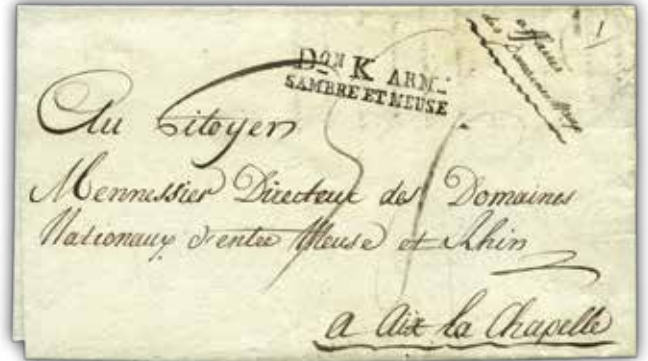 Don K ARM.
SAMBRE ET MEUSE
affaires
des Domaines
1
Au Citoyen
Mennessier Directeur des Domaines
Nationaux d'entre Meuse et Rhin
a Aix la Chapelle